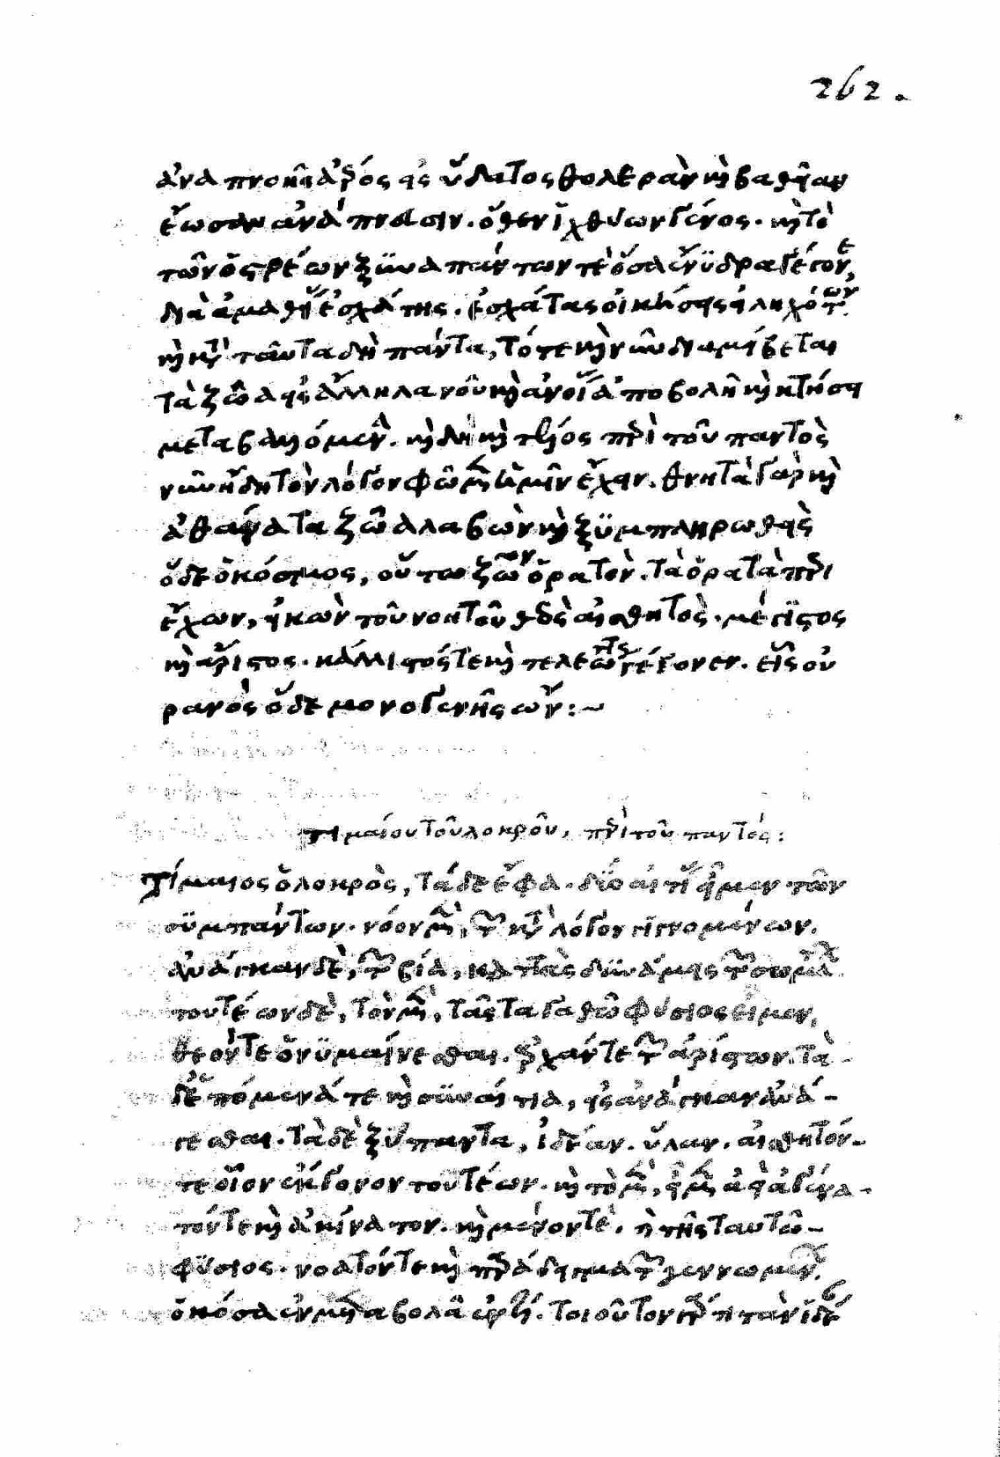 262.
ἀναπνοῆς ἀέρος εἰς ὕδατος θολερὰν καὶ βαθεῖαν
ἔωσαν ἀνάπνευσιν. ὅθεν ἰχθύων γένος. καὶ τὸ
τῶν ὀστρέων ξυναπάντων τε ὅσα ἔνυδρα γέγονε,
δίκην ἀμαθίας ἐσχάτης. ἐσχάτας οἰκήσεις εἰληχότων.
καὶ κατὰ ταῦτα δὴ πάντα, τότε καὶ νῦν διαμείβεται
τὰ ζῶα εἰς ἄλληλα νοῦ καὶ ἀνοίας ἀποβολῆ καὶ κτήσει
μεταβαλλόμενα. καὶ δὴ καὶ τέλος περὶ τοῦ παντὸς
νῦν ἤδη τὸν λόγον φῶμεν ἡμῖν ἔχειν. θνητὰ γὰρ καὶ
ἀθάνατα ζῶα λαβὼν καὶ ξυμπληρωθεὶς
ὅδε ὁ κόσμος, οὕτω ζῶον ὁρατὸν. τὰ ὁρατὰ περι
έχων, εἰκὼν τοῦ νοητοῦ θεὸς αἰσθητὸς. μέγιστος
καὶ ἄριστος. κάλλιστός τε καὶ τελεώτατος γέγονεν. εἷς οὐ
ρανὸς ὅδε μονογενὴς ὤν:~
τιμαίου τοῦ λοκροῦ, περὶ τοῦ παντός:
Τίμαιος ὁ λοκρὸς, τάδε ἔφα. δύο αἰτίας εἶμεν τῶν
συμπάντων. νόον μὲν, τῶν κατὰ λόγον γιγνομένων.
ἀνάγκαν δὲ, τῶν βία, καττὰς δυνάμεις τῶν σωμάτων.
τουτέων δὲ, τὸν μὲν, τᾶς τἀγαθῶ φύσιος εἶμεν,
θεόν τε ὀνυμαίνεσθαι. ἀρχάν τε τῶν ἀρίστων. τὰ
δ' ἑπόμενά τε καὶ συναίτια, εἰς ἀνάγκαν ἀνά-
γεσθαι. τὰ δὲ ξύμπαντα, ἰδέαν. ὕλαν. αἰσθητόν-
τε οἷον ἔκγονον τουτέων. καὶ τὸ μὲν, εἶμεν ἀεὶ ἀγένα-
τόν τε καὶ ἀκίνατον. καὶ μένον τὲ. καὶ τῆς ταυτῶ-
φύσιος. νοατόν τε καὶ παράδειγμα τῶν γεννωμένων.
ὁκόσα ἐν μεταβολᾶ ἐντί. τοιοῦτον γάρ τι τὰν ἰδέ